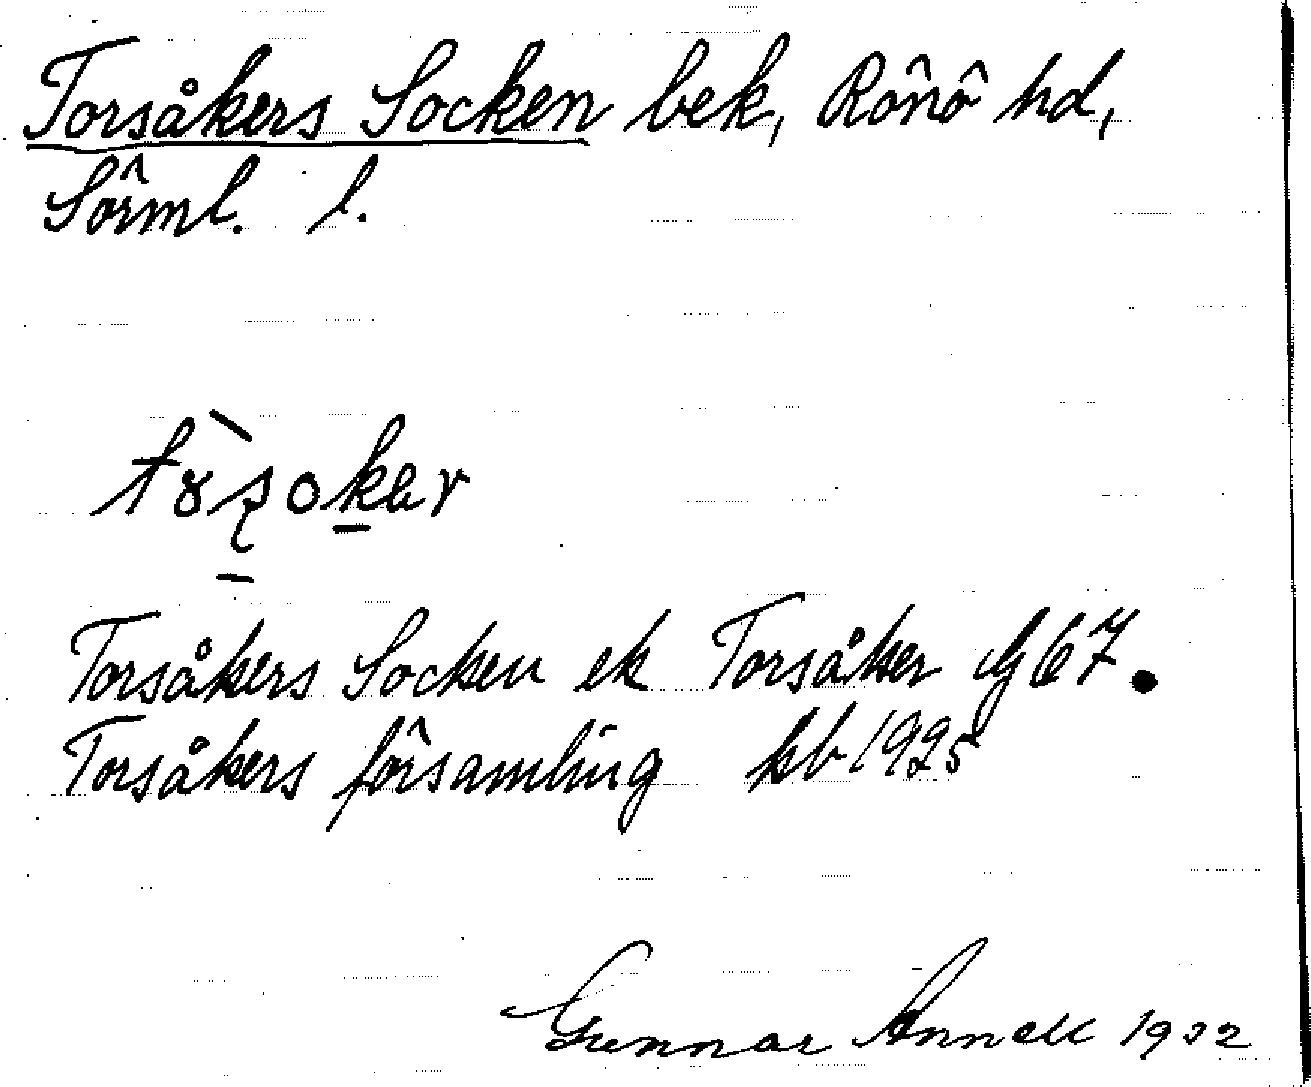 Torsåkers Socken bek, Rônô hd,
Sôrml. l.
Torsåkers Socken ek Torsåker G 67.
Torsåkers fôrsamling kb 1925
Gunnar Annell 1932